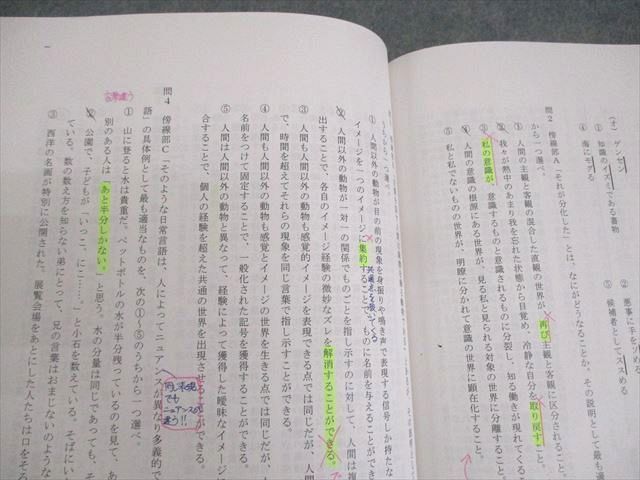 (オ) ゲンセン
① 知識のイズミである書物
④ 海にモグる
② 悪事に
⑤ 候補者としてススめる
問2 傍線部A「それが分化した」とは、なにがどうなることか、その説明として最も適
から一つ選べ。
① 人間の主観と客観の混合した直観の世界が、再び主観と客観に区分されること。
② 我々が熱中のあまり我を忘れた状態から目覚め、冷静な自分を取り戻すこと。
③ 私の意識が、意識するものと意識されるものに分裂し、知る働きが現れてくること
④ 人間の意識の根源にある世界が、見る私と見られる対象の世界に分離すること。
⑤ 私と私でないものの世界が、明瞭に分かれて意識の世界に顕在化すること。
のうちから一つ選べ。
① 人間以外の動物が目の前の現象を身振りや鳴き声で表現する信号しか持たな
イメージを一つのイメージに集約することで、ものに名前を与えることができ
共通点を扱ってくる
② 人間以外の動物が一対一の関係でものごとを指し示すのに対して、人間は複
出することで、各自のイメージ経験の微妙なズレを解消することができる。
③ 人間も人間以外の動物も感覚的イメージを表現できる点では同じだが、人間
で、時間を超えてそれらの現象を同じ言葉で指し示すことができる。
④ 人間も人間以外の動物も感覚とイメージの世界を生きる点では同じだが、人
名前をつけて固定することで、一般化された記号を獲得することができる。
⑤ 人間は人間以外の動物と異なって、経験によって獲得した曖昧なイメージに
合することで、個人の経験を超えた共通の世界を出現させることができる。
問4 傍線部C「そのような日常言語は、人によってニュアンスが異なり多義的で
語」の具体例として最も適当なものを、次の①〜⑤のうちから一つ選べ。
同じ表現でもニュアンスが違う!!
① 山に登ると水は貴重だ。ペットボトルの水が半分残っているのを見て、あ
別のある人は「あと半分しかない。」と思う。水の分量は同じであっても、そ
② 公園で、子どもが「いっこ、にこ……」と小石を数えている。そばにい
ている。数の数え方を知らない弟にとって、兄の言葉はおまじないのような
③ 西洋の名画が特別に公開された。展覧会場をあとにした人たちは口をそろ